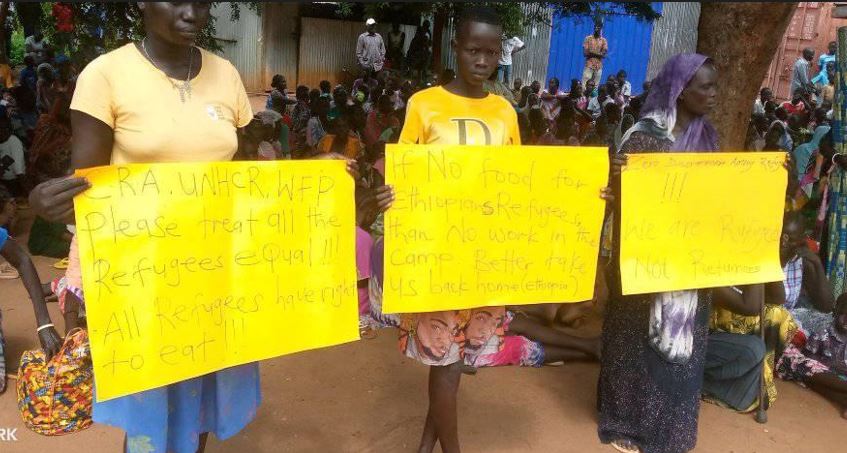 CRA. UNHCR, WFP
Please treat all the
Refugees equal!!!
All Refugees have right
to eat!!!
If No food for
EthiopiansRefugees,
than No work in the
Camp. Better take
us back home (ethiopia)
D
Zero Discrimination Among Refugee
!!!
We are Refugees
Not Returnees
RK